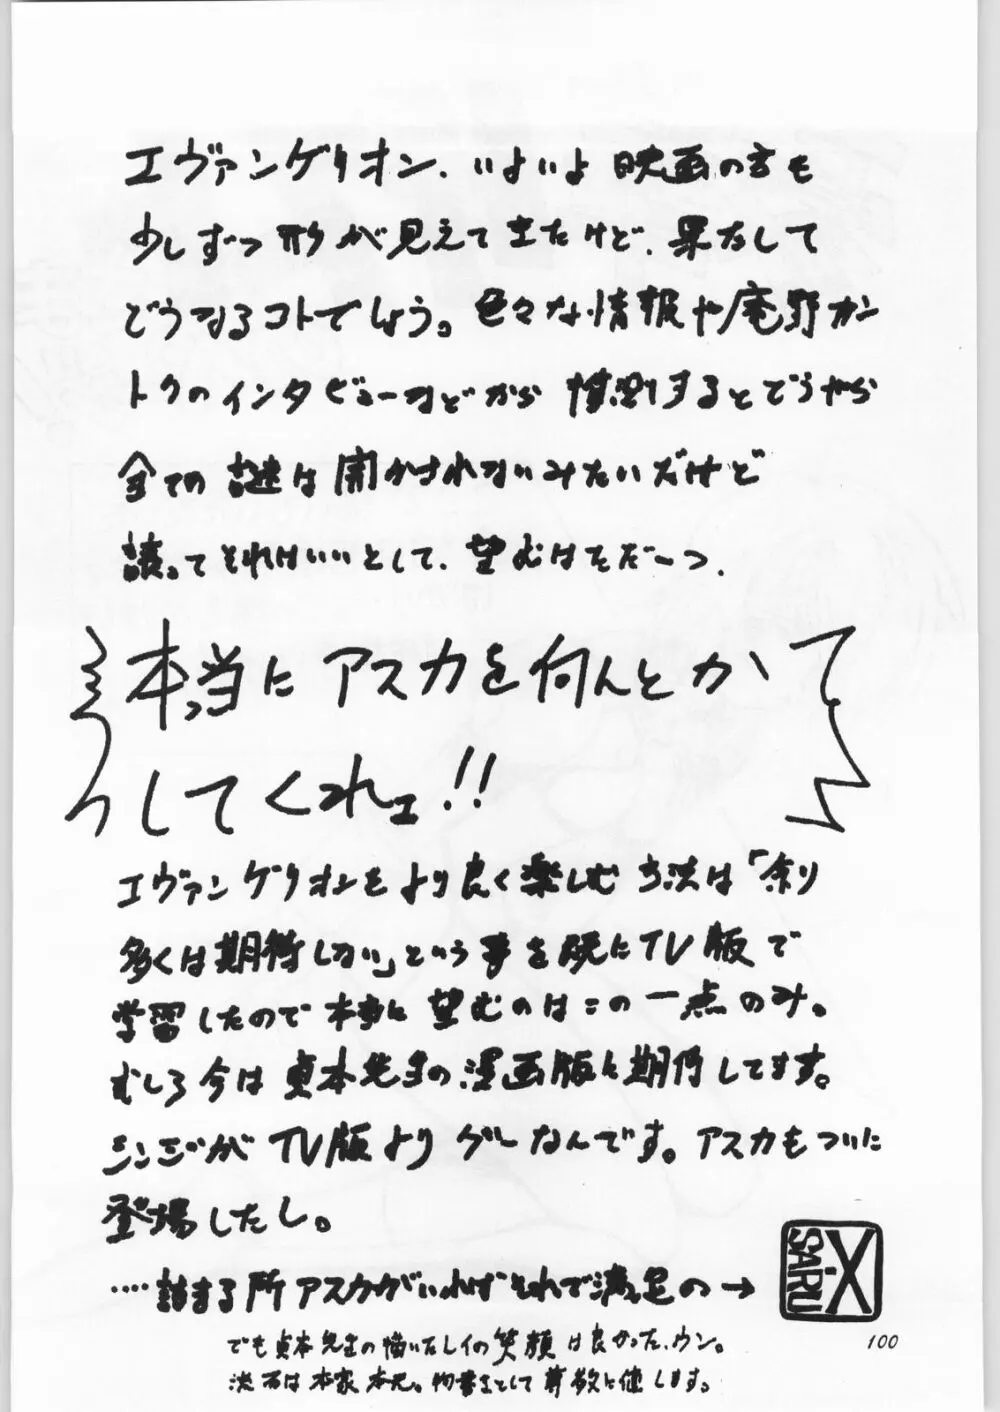 エヴァンゲリオン、いよいよ映画の方も
少しずつ形が見えてきたけど、果たして
どうなるコトでしょう。色々な情報や庵野カン
トクのインタビューなどから推測するとどうやら
全ての謎は開かされないみたいだけど
譲ってそれはいいとして、望むはそだーつ、
本っ当にアスカを何んとか
してくれェ!!
エヴァンゲリオンをより良く楽しむ方法は「余り
多くは期待しない」という事を既にTV版で
学習したので本当に望むのはこの一点のみ。
むしろ今は貞本先生の漫画版に期待してます。
シンジがTV版よりグーなんです。アスカもついに
登場したし。
‥‥詰まる所アスカがいればそれで満足の→
X-SARU
でも貞本先生の描いたレイの笑顔は良かった、ウン。
流石は本家本元。物書きとして尊敬に値します。
100